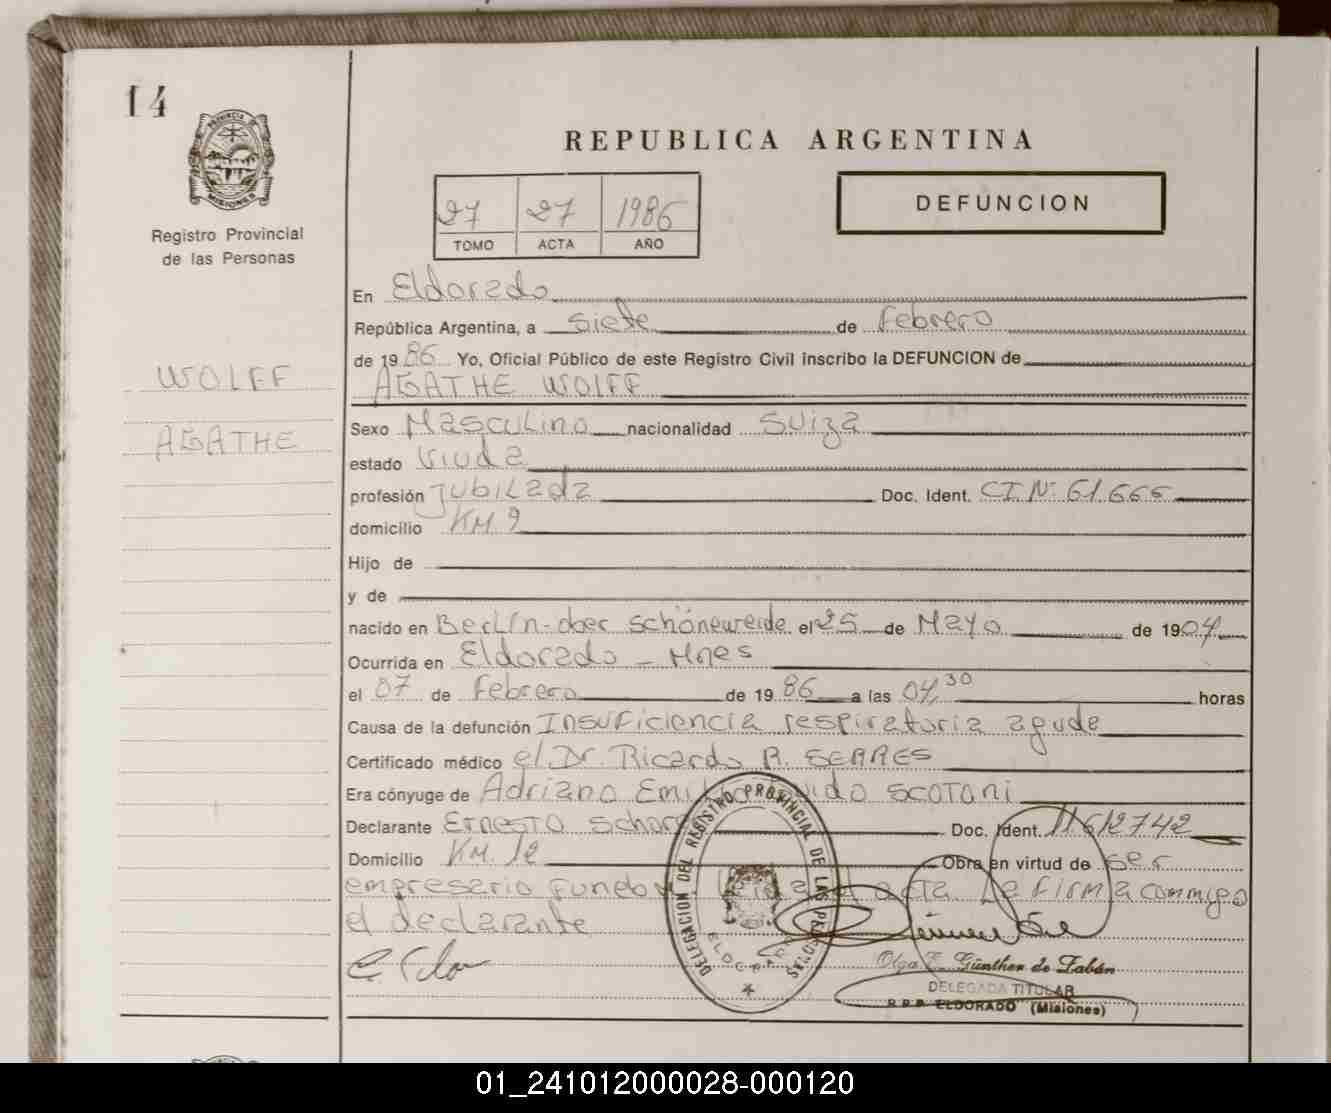 14
PROVINCIA DE
MISIONES
Registro Provincial
de las Personas
WOLFF
AGATHE
REPUBLICA ARGENTINA
27 27 1986
TOMO ACTA AÑO
DEFUNCION
En Eldorado
República Argentina, a siete de Febrero
de 1986 Yo, Oficial Público de este Registro Civil inscribo la DEFUNCION de
AGATHE WOLFF
Sexo Masculino nacionalidad Suiza
estado Viuda
profesión jubilada Doc. Ident. CI.Nº 61.666
domicilio KM. 9
Hijo de
y de
nacido en Berlín-ober schöneweide el 25 de Mayo de 1904
Ocurrida en Eldorado - Mnes
el 07 de Febrero de 1986 a las 04,30 horas
Causa de la defunción Insuficiencia respiratoria aguda
Certificado médico el Dr. Ricardo R. SERRES
Era cónyuge de Adriano Emilio Guido SCOTONI
Declarante Ernesto Doc. Ident. 11.612.742
Domicilio KM. 12 Obra en virtud de ser
empresario funebre acta. La firma conmigo
el declarante
DELEGACION DEL REGISTRO PROVINCIAL DE LAS PERSONAS
ELDORADO
Olga E. Günther de Zabán
DELEGADA TITULAR
R.P.P. ELDORADO (Misiones)
01_241012000028-000120